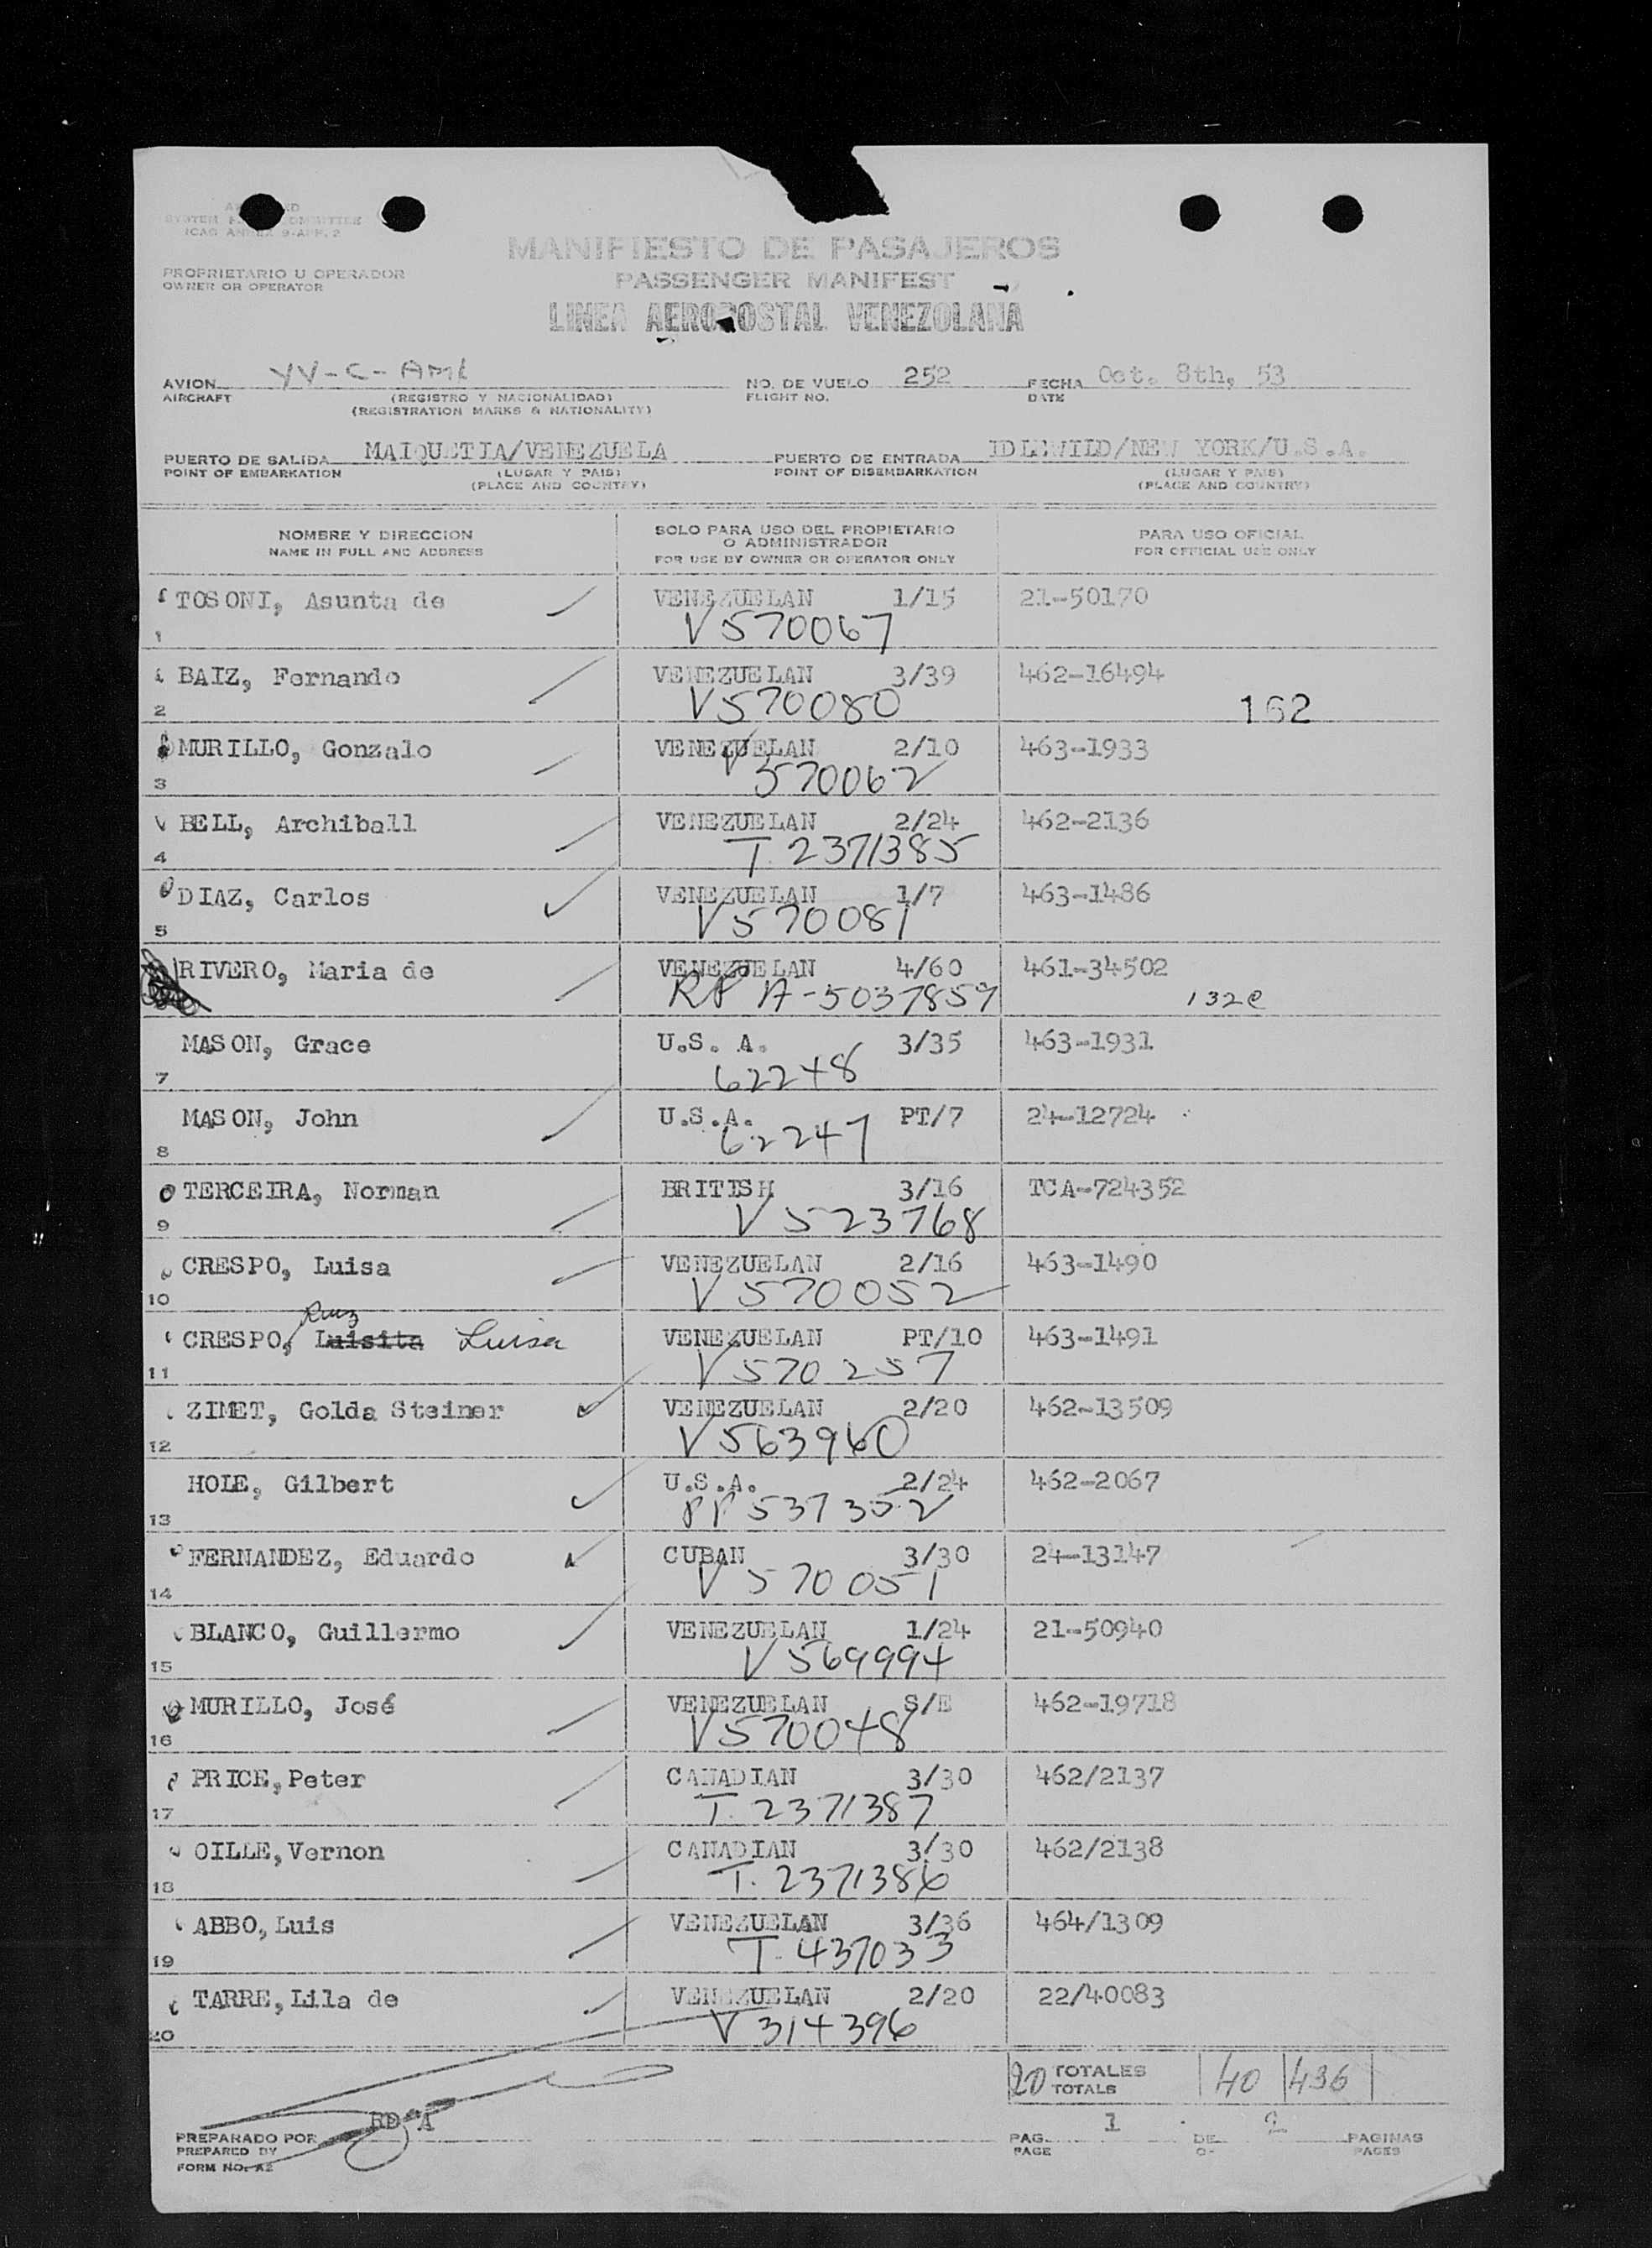 SYSTEM
ICAO ANNEX 9-APP. 2
MANIFIESTO DE PASAJEROS
PASSENGER MANIFEST
PROPRIETARIO U OPERADOR
OWNER OR OPERATOR
LINEA AEROPOSTAL VENEZOLANA
AVION YV-C-AML NO. DE VUELO 252 FECHA Oct. 8th, 53
AIRCRAFT (REGISTRO Y NACIONALIDAD) FLIGHT NO. DATE
(REGISTRATION MARKS & NATIONALITY)
PUERTO DE SALIDA MAIQUETIA/VENEZUELA PUERTO DE ENTRADA IDLEWILD/NEW YORK/U.S.A.
POINT OF EMBARKATION (LUGAR Y PAIS) POINT OF DISEMBARKATION (LUGAR Y PAIS)
(PLACE AND COUNTRY) (PLACE AND COUNTRY)
NOMBRE Y DIRECCION SOLO PARA USO DEL PROPIETARIO PARA USO OFICIAL
O ADMINISTRADOR
NAME IN FULL AND ADDRESS FOR USE BY OWNER OR OPERATOR ONLY FOR OFFICIAL USE ONLY
TOSONI, Asunta de VENEZUELAN 1/15 21-50170
1 V570067
BAIZ, Fernando VENEZUELAN 3/39 462-16494
2 V570080 162
MURILLO, Gonzalo VENEZUELAN 2/10 463-1933
3 V570062
BELL, Archiball VENEZUELAN 2/24 462-2136
4 T. 2371385
DIAZ, Carlos VENEZUELAN 1/7 463-1486
5 V570081
RIVERO, Maria de VENEZUELAN 4/60 461-34502
RP A-5037859 132e
MASON, Grace U.S. A. 3/35 463-1931
7 62248
MASON, John U.S.A. PT/7 24-12724
8 62247
TERCEIRA, Norman BRITISH 3/16 TCA-724352
9 V523768
CRESPO, Luisa VENEZUELAN 2/16 463-1490
10 V570052
Ruiz
CRESPO, Luisita Luisa VENEZUELAN PT/10 463-1491
11 V570257
ZIMET, Golda Steiner VENEZUELAN 2/20 462-13509
12 V563960
HOLE, Gilbert U.S.A. 2/24 462-2067
13 PP 537352
FERNANDEZ, Eduardo CUBAN 3/30 24-13147
14 V570051
BLANCO, Guillermo VENEZUELAN 1/24 21-50940
15 V569994
MURILLO, José VENEZUELAN S/E 462-19718
16 V570048
PRICE,Peter CANADIAN 3/30 462/2137
17 T. 2371387
OILLE,Vernon CANADIAN 3/30 462/2138
18 T. 2371386
ABBO,Luis VENEZUELAN 3/36 464/1309
19 T. 437033
TARRE,Lila de VENEZUELAN 2/20 22/40083
20 V314396
20 TOTALES 40 436
TOTALS
PREPARADO POR PAG. 1 DE 2 PAGINAS
PREPARED BY PAGE O- PAGES
FORM NO. A2